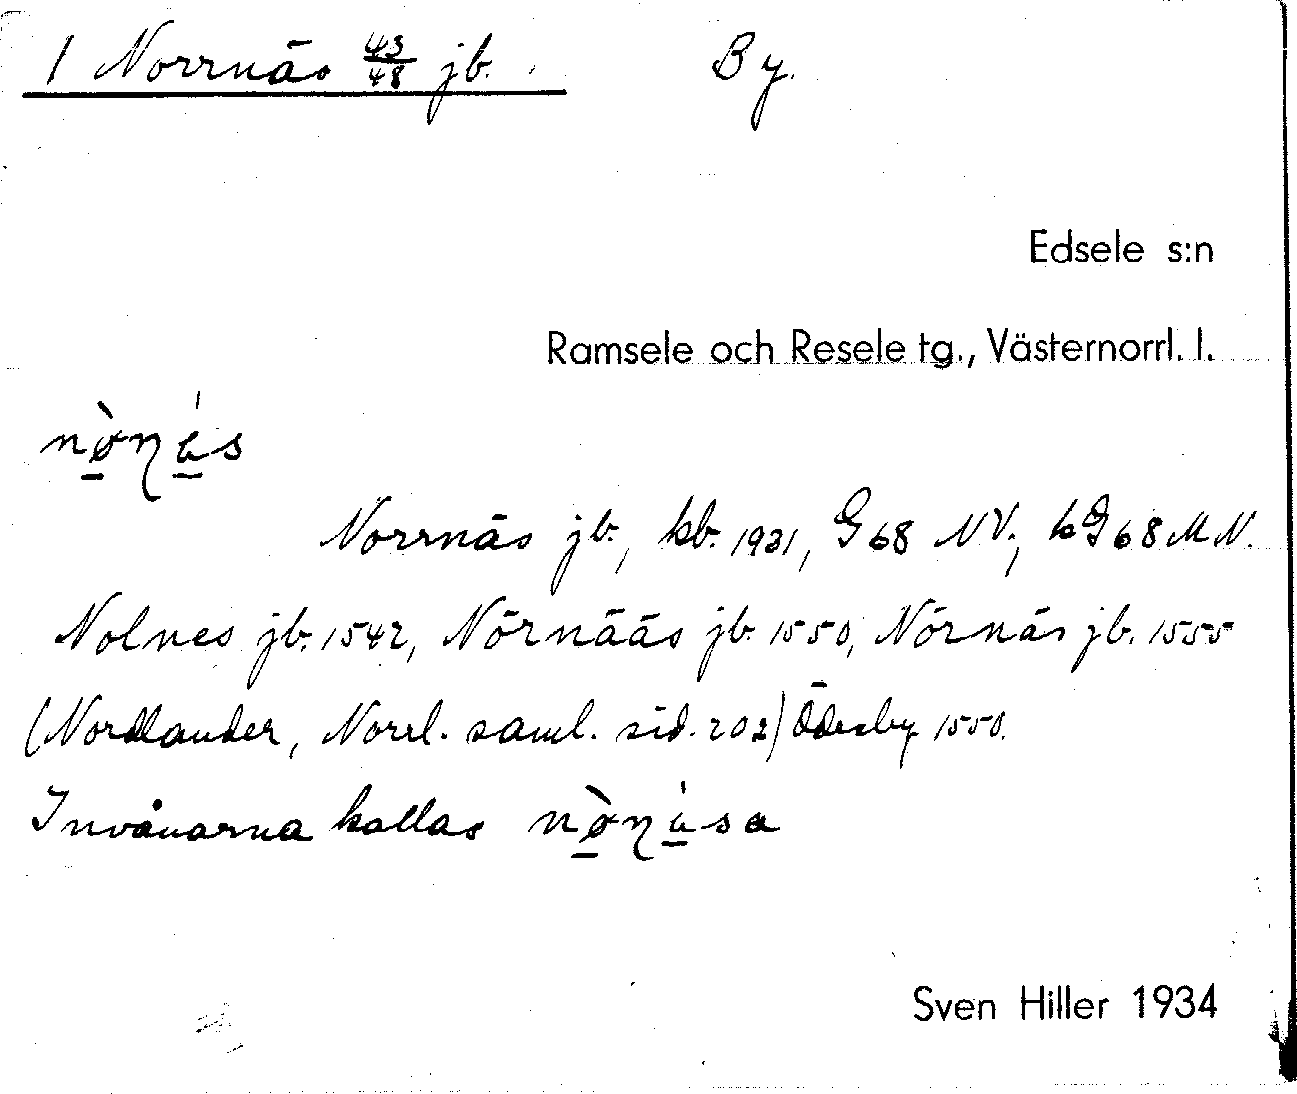 1 Norrnäs 43/48 jb. By.
Edsele s:n
Ramsele och Resele tg., Västernorrl. l.
Norrnäs jb., kb. 1931, G68 NV., kG68 MN.
Nolnes jb. 1542, Nörnääs jb. 1550, Nörnäs jb. 1555
(Nordlander, Norrl. saml. sid. 202) Ödesby 1550.
Invånarna kallas
Sven Hiller 1934